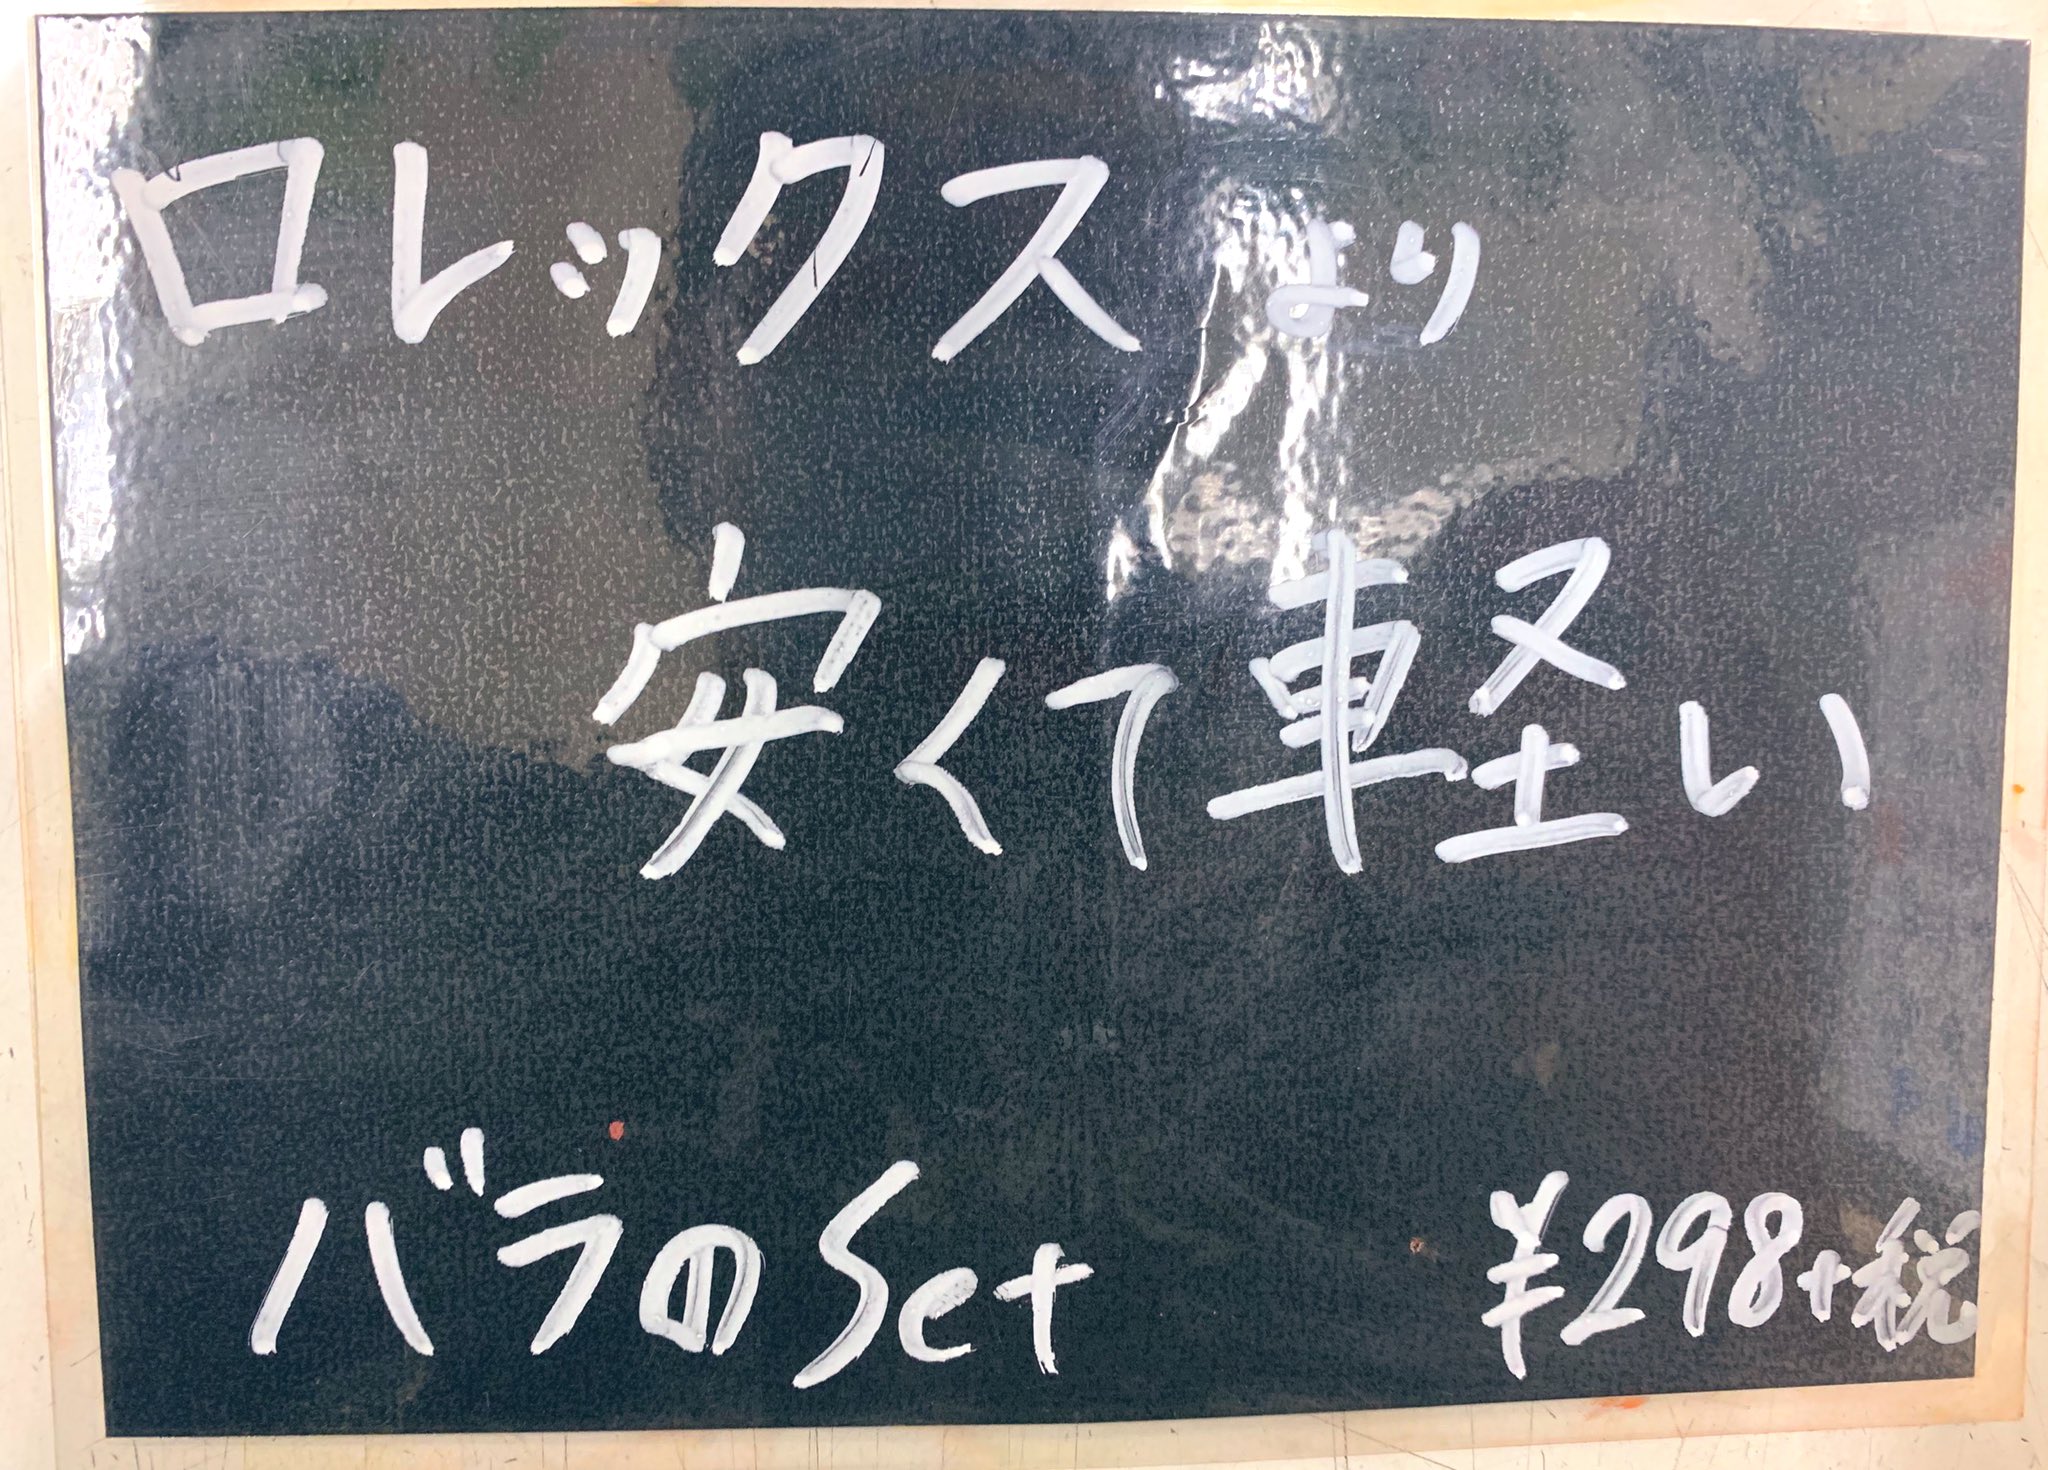 ロレックスより
安くて軽い
バラのSet ¥298+税